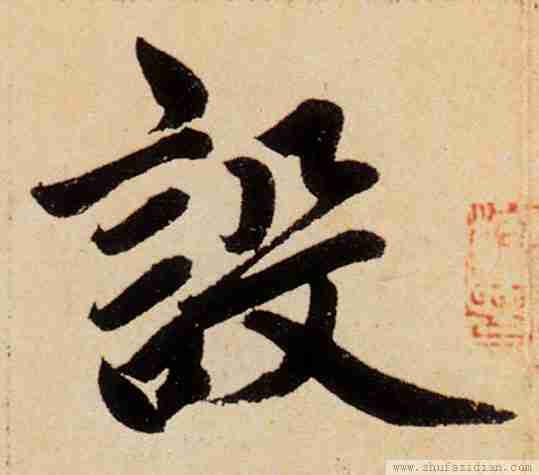 設
www.shufazidian.com